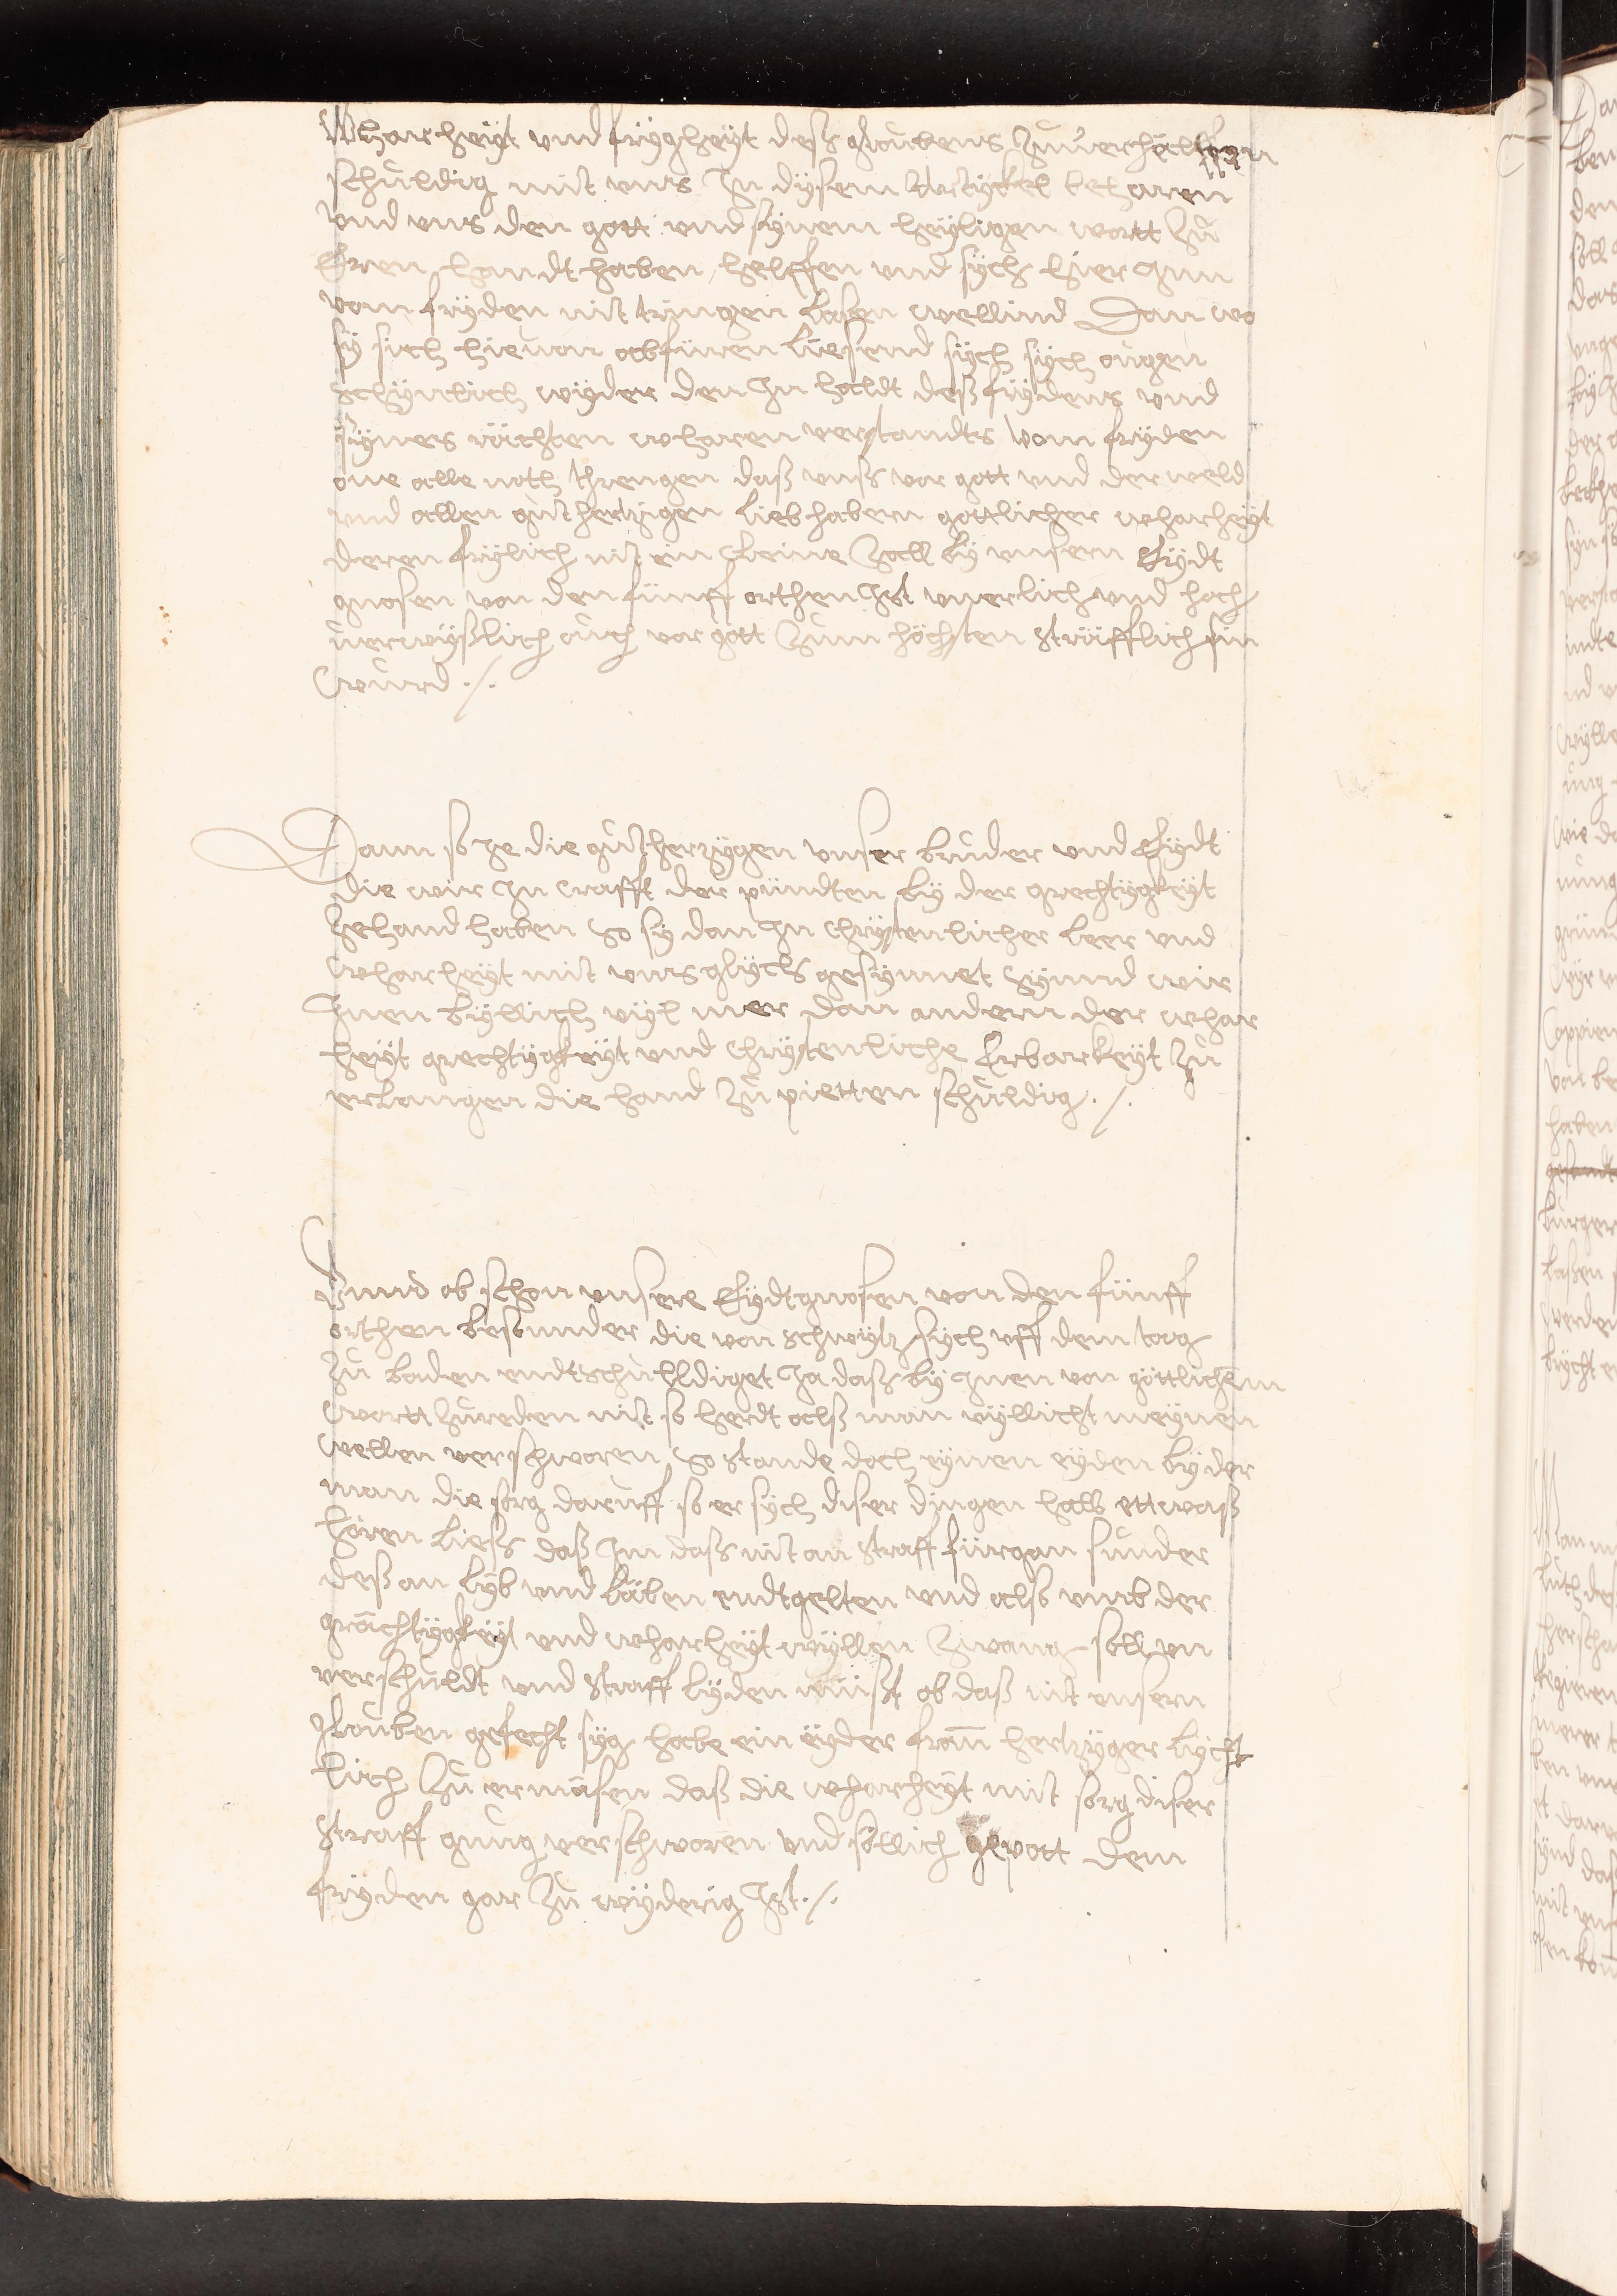 Wharheÿt vnd frÿgheÿt deß gloubens zuuerhälffen
schuldig mit vns In dÿsem Artÿckel beharen
vnd vns den gott vnd sÿnem heÿligen wortt zů
Eren handthaben helffen vnd sÿch hier Inn
vom frÿden nit tringen lasen wellind Dan wo
sÿ sich hieuon abfüren liesend sÿch sÿch ougen
schÿnlich wÿder den In haldt deß frÿdens vnd
sÿnes rächten wharen verstandts vom frÿden
one alle noth threngen daß vnß vor gott vnd der weld
vnd allen gůthertzigen liebhabern gottlicher wharheÿt
deren frÿlich nit ein kleine zall bÿ vnsern Eÿdt
gnosen von den fünff orthen Ist vnerlich vnd hoch
uerwÿßlich ouch vor gott zum höchsten sträfflich sin
wurd ./.
Dann so Ie die gůtherzÿgen vnser brůder vnd Eÿdt
die wir In crafft der pündten bÿ der grechtÿgkeÿt
zehand haben so sÿ dan In chrÿstenlicher leer vnd
wharheÿt mit vns glÿchs gesÿnnet sÿnnd wir
Inen bÿllich vÿl mer dan andern der whar
heÿt grechtÿgkeÿt vnd chrÿstenliche Erbarkeÿt zů
erlangen die hand zů pietten schuldig ./.
Vnnd ob schon vnsere Eÿdtgnosen von den fünff
orthen besunder die von schwÿtz sÿch vff dem tag
zů baden endtschulldiget Ia daß bÿ Inen von göttlichem
wortt zureden nit so herdt alß man vÿllicht meÿnen
wellen verschworen so stande doch eÿnen eÿden bÿder
man die sorg daruff so er sÿch diser dingen halb ettwaß
hören ließ daß Im daß nit an straff fürgan sunder
deß an lÿb vnd läben endtgelten vnd alß vmb der
grächtÿgkeÿt vnd wharheÿt wÿllen zwang soll vn
verschuldt vnd straff lÿden müst ob daß nit vnsern
glouben gefecht sÿg habe ein ÿder from hertzÿger lÿcht
lich zů ermäsen daß die wharheÿt mit sorg diser
straff gnug verschworen vnd söllich gepott dem
frÿden gar zů wÿderig Ist ./.